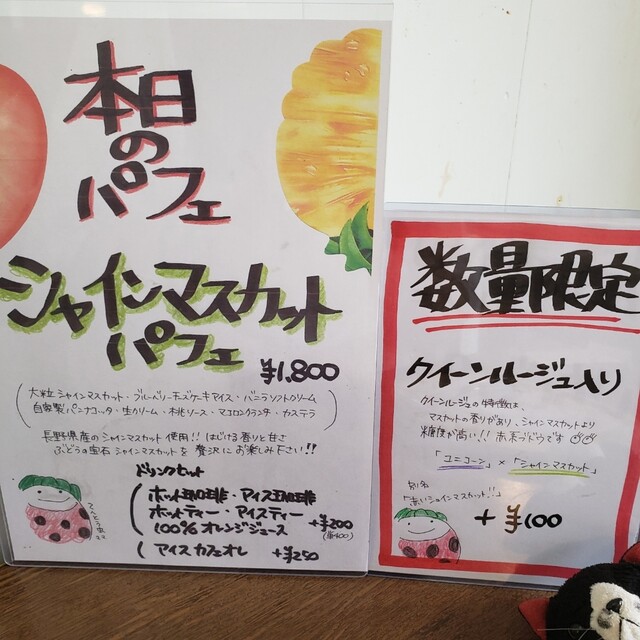 本日
の
パフェ
シャインマスカット
パフェ
¥1,800
大粒シャインマスカット・ブルーベリーチーズケーキアイス・バニラソフトクリーム
自家製パンナコッタ・生クリーム・桃ソース・マコロンクランチ・カステラ
長野県産のシャインマスカット使用!! はじける香りと甘さ
ぶどうの宝石シャインマスカットを贅沢にお楽しみ下さい!!
ドリンクセット
ホット珈琲・アイス珈琲
ホットティー・アイスティー
100%オレンジジュース +¥200
アイスカフェオレ +¥250
数量限定
クイーンルージュ入り
クイーンルージュの特徴は、
マスカットの香りがあり、シャインマスカットより
糖度が高い!! 赤系ブドウです
「ユニコーン」×「シャインマスカット」
別名
「赤いシャインマスカット!!」
+¥100